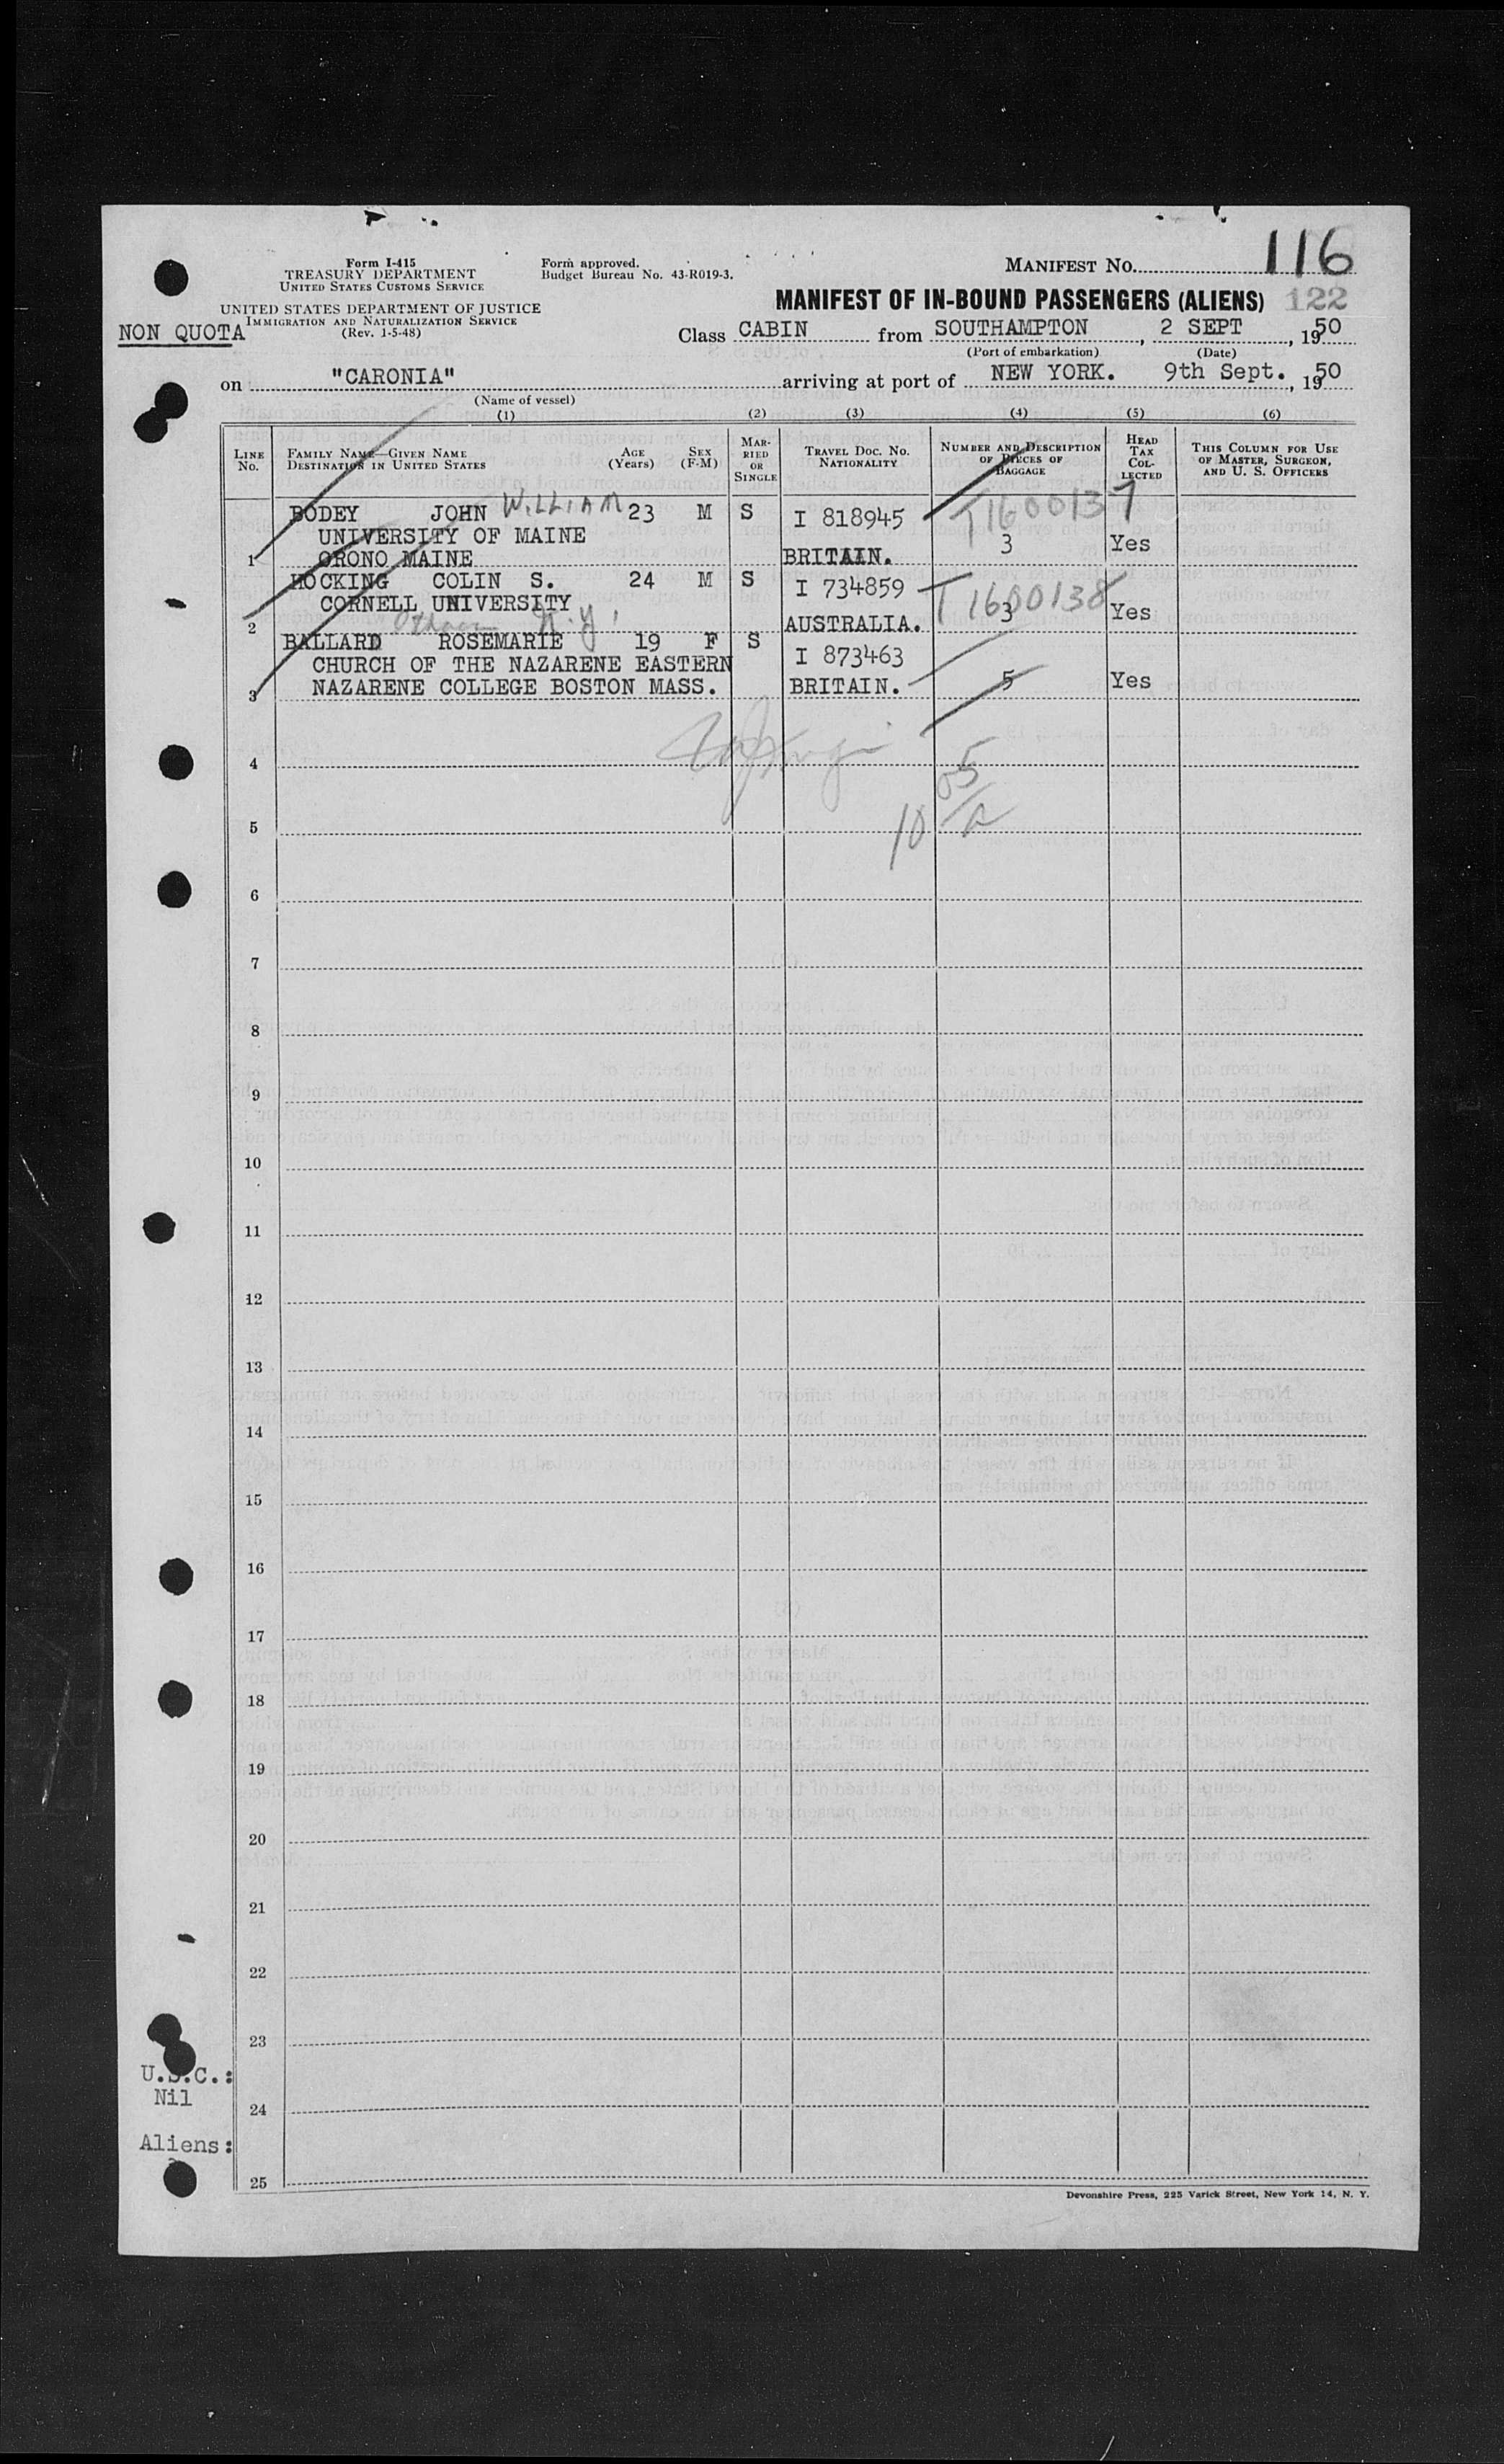 116
Form I-415
TREASURY DEPARTMENT
UNITED STATES CUSTOMS SERVICE
Form approved.
Budget Bureau No. 43-R019-3.
MANIFEST NO.
UNITED STATES DEPARTMENT OF JUSTICE
IMMIGRATION AND NATURALIZATION SERVICE
(Rev. 1-5-48)
NON QUOTA
MANIFEST OF IN-BOUND PASSENGERS (ALIENS) 122
Class CABIN from SOUTHAMPTON, 2 SEPT, 1950
(Port of embarkation) (Date)
on "CARONIA" arriving at port of NEW YORK. 9th Sept., 1950
(Name of vessel)
(1) (2) (3) (4) (5) (6)
LINE No.
FAMILY NAME—GIVEN NAME
DESTINATION IN UNITED STATES
AGE (Years)
SEX (F-M)
MARRIED OR SINGLE
TRAVEL DOC. NO.
NATIONALITY
NUMBER AND DESCRIPTION OF PIECES OF BAGGAGE
HEAD TAX COLLECTED
THIS COLUMN FOR USE OF MASTER, SURGEON, AND U. S. OFFICERS
BODEY JOHN WILLIAM 23 M S I 818945 T1600137
UNIVERSITY OF MAINE 3 Yes
1 ORONO MAINE BRITAIN.
HOCKING COLIN S. 24 M S I 734859 T1600138
CORNELL UNIVERSITY 3 Yes
2 N.Y. AUSTRALIA.
BALLARD ROSEMARIE 19 F S I 873463
CHURCH OF THE NAZARENE EASTERN
3 NAZARENE COLLEGE BOSTON MASS. BRITAIN. 5 Yes
4
5
6
7
8
9
10
11
12
13
14
15
16
17
18
19
20
21
22
23
24
25
U.S.C.:
Nil
Aliens:
Devonshire Press, 225 Varick Street, New York 14, N. Y.